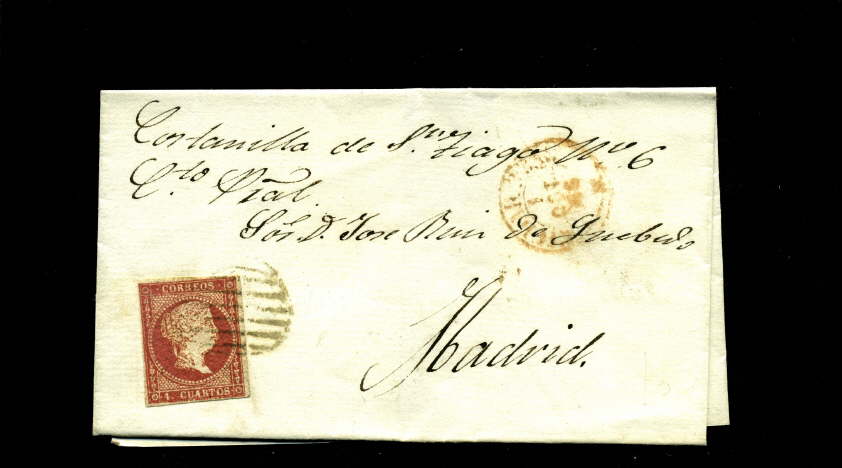 Costanilla de S.n Tiago Nº. 6
C.to Pral.
Sōr. D. Jose Ruiz de Quebedo
Madrid.
CORREOS
4. CUARTOS